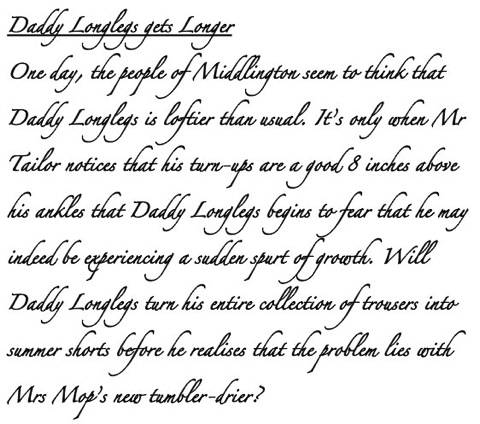 Daddy Longlegs gets Longer
One day, the people of Middlington seem to think that
Daddy Longlegs is loftier than usual. It's only when Mr
Tailor notices that his turn-ups are a good 8 inches above
his ankles that Daddy Longlegs begins to fear that he may
indeed be experiencing a sudden spurt of growth. Will
Daddy Longlegs turn his entire collection of trousers into
summer shorts before he realises that the problem lies with
Mrs Mop's new tumbler-drier?